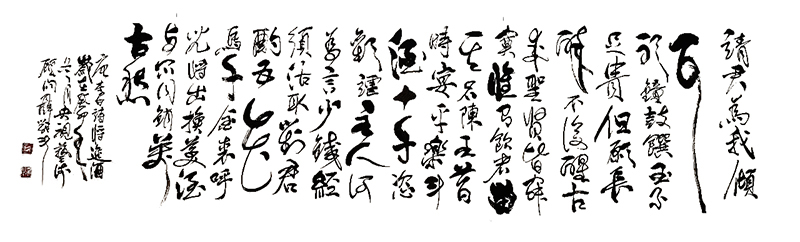 請君為我傾
耳
聽鐘鼓饌玉不
足貴但願長
醉不復醒古
來聖賢皆寂
寞惟有飲者留
其名陳王昔
時宴平樂斗
酒十千恣
歡謔主人何
為言少錢徑
須沽取對君
酌五花
馬千金裘呼
兒將出換美酒
與爾同銷萬
古愁
唐李白詩將進酒
歲在
月央視藝術
顧問